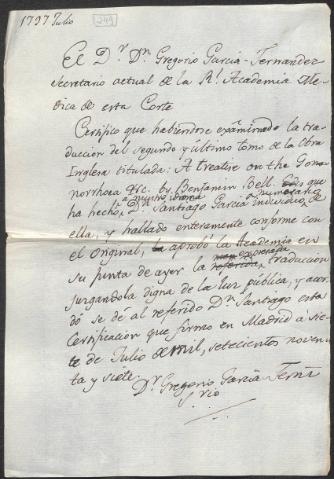 1797 Julio
249
El D.r D.n Gregorio Garcia-Fernandez
Secretario actual de la R.l Academia Me-
dica de esta Corte
Certifico que habiendose exâminado la tra-
duccion del segundo y último tomo de la Obra
Inglesa titulada: A treatise on the Gono
norrhoea &c. by Benjamin Bell. que
ha hecho D.n Santiago Garcia individuo de
numerario
ella, y hallado enteramente conforme con
el original, aprobó la Academia en
su junta de ayer la referida traduccion
expresada
juzgandola digna de la luz pública, y acor-
dó se dé al referido D.n Santiago esta
Certificacion que firmo en Madrid a sie-
te de Julio de mil, setecientos noven-
ta y siete.
D.r Gregorio Garcia Fern.z
S.rio